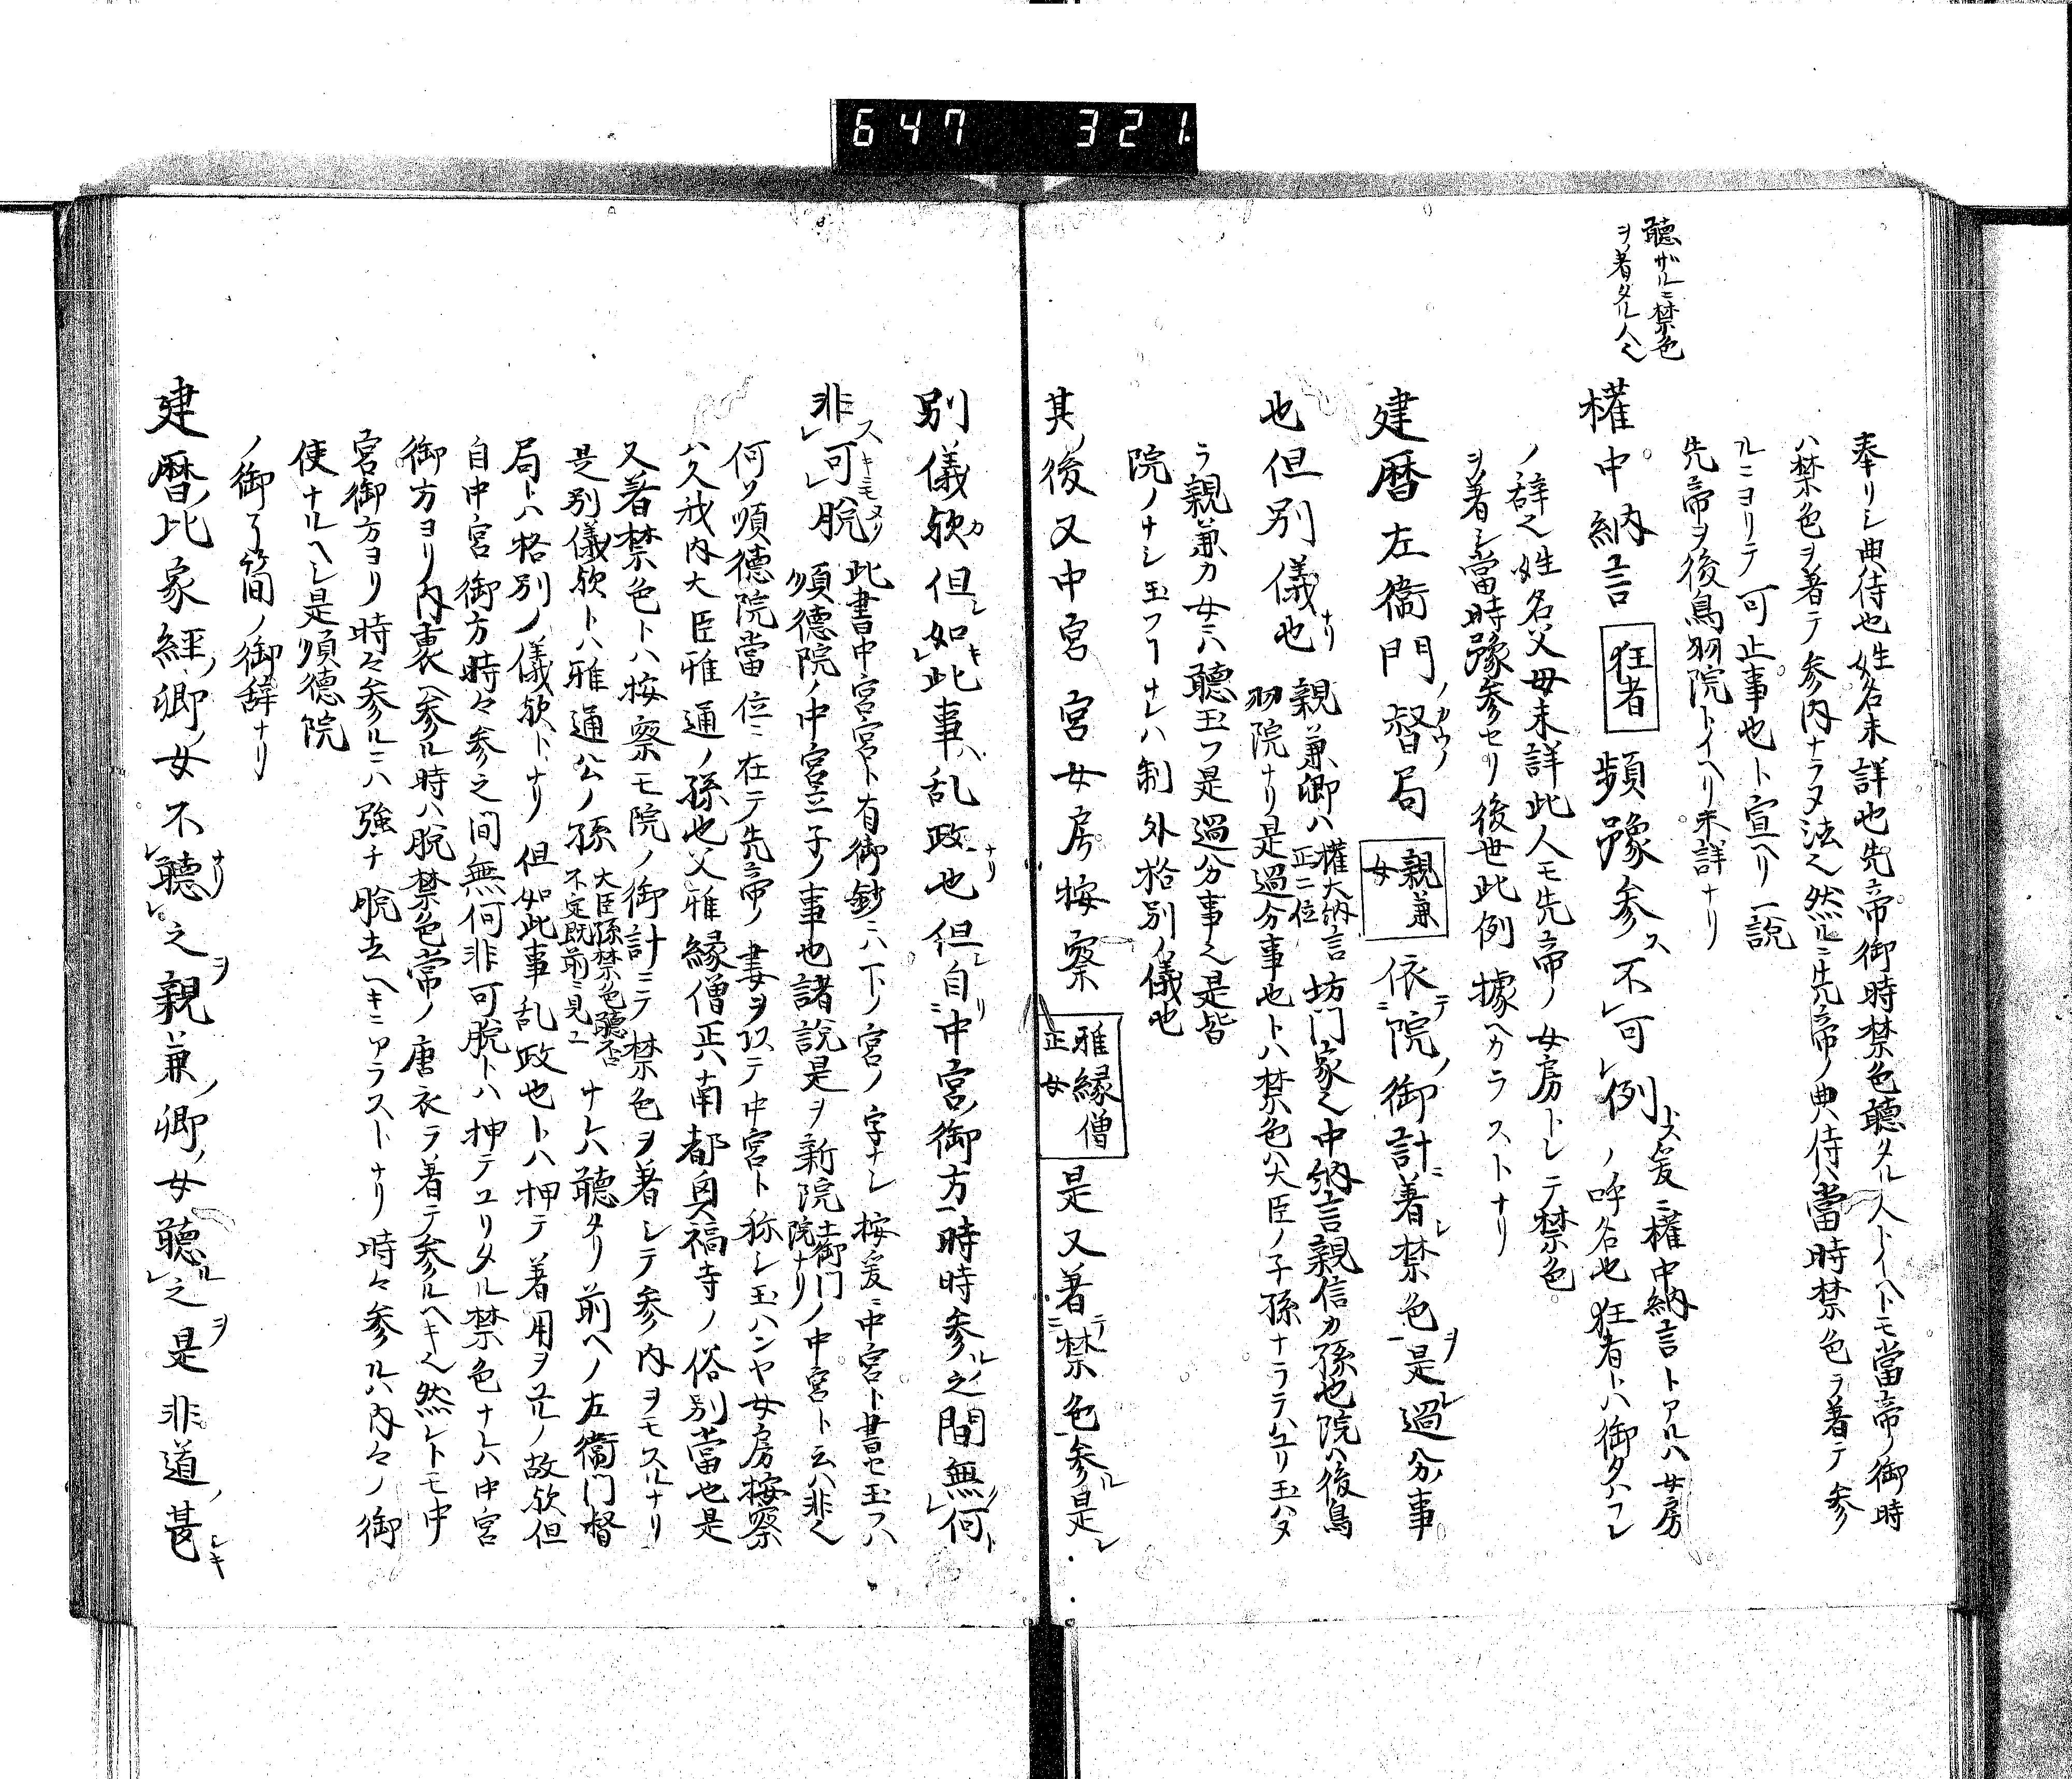 647 321
聴ザルニ禁色
ヲ著タル人也
奉リシ典侍也姓名未詳也先帝御時禁色聴タル人トイヘトモ當帝ノ御時
ハ禁色ヲ著テ参内ナラヌ法也然ルニ先帝ノ典侍ハ當時禁色ヲ著テ参
ルニヨリテ可止事也ト宣ヘリ一説
先帝ヲ後鳥羽院トイヘリ未詳ナリ
權中納言 狂者 頻豫参ス不可例トス爰ニ權中納言トアルハ女房
ノ呼名也狂者トハ御タハフレ
ノ辞也姓名父母未詳此人モ先帝ノ女房トシテ禁色
ヲ著シ當時豫参セリ後世此例據ヘカラストナリ
建暦左衞門督局 親兼女 依院御計著禁色是過分事
也但別儀也 親兼卿ハ權大納言正二位坊門家也中納言親信カ孫也院ハ後鳥
羽院ナリ是過分事也トハ禁色ハ大臣ノ子孫ナラテハユリ玉ハヌ
ヲ親兼カ女ニハ聴玉フ是過分事也是皆
院ノナシ玉フコナレハ制外格別ノ儀也
其後又中宮宮女房按察 雅縁僧正女 是又著禁色参是
別儀欤但如此事乱政也但自中宮御方時時参之間無何
非可脱 此書中宮宮ト有御鈔ニハ下ノ宮ノ字ナシ按爰ニ中宮ト書セ玉フハ
順德院ノ中宮立子ノ事也諸説是ヲ新院土御門院ナリノ中宮ト云ハ非也
何ソ順德院當位ニ在テ先帝ノ妻ヲ以テ中宮ト称シ玉ハンヤ女房按察
ハ久我内大臣雅通ノ孫也父雅縁僧正ハ南都興福寺ノ俗別當也是
又著禁色トハ按察モ院ノ御計ニテ禁色ヲ著シテ参内ヲモスルナリ
是別儀欤トハ雅通公ノ孫大臣孫禁色聴否不定既前ニ見ユナレハ聴タリ前ヘノ左衞門督
局トハ格別ノ儀欤トナリ但如此事乱政也トハ押テ著用ヲ云ルノ故欤但
自中宮御方時々参之間無何非可脱トハ押テユリタル禁色ナレハ中宮
御方ヨリ内裏ヘ参ル時ハ脱禁色常ノ唐衣ヲ著テ参ルヘキ也然レトモ中
宮御方ヨリ時々参ルニハ強チ脱去ヘキニアラストナリ時々参ルハ内々ノ御
使ナルヘシ是順德院
ノ御了簡ノ御辞ナリ
建暦比家經卿女不聴之親兼卿女聴之是非道甚